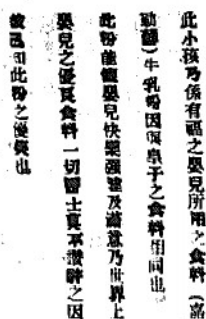 此小孩乃係有福之嬰兒所用之食料(高
勒)牛乳粉因與皇子之食料相同也
此粉能健嬰兒快樂强壯及滿意乃世界上
嬰兒之優良食料一切醫士莫不讚辭之因
彼已知此粉之優質也